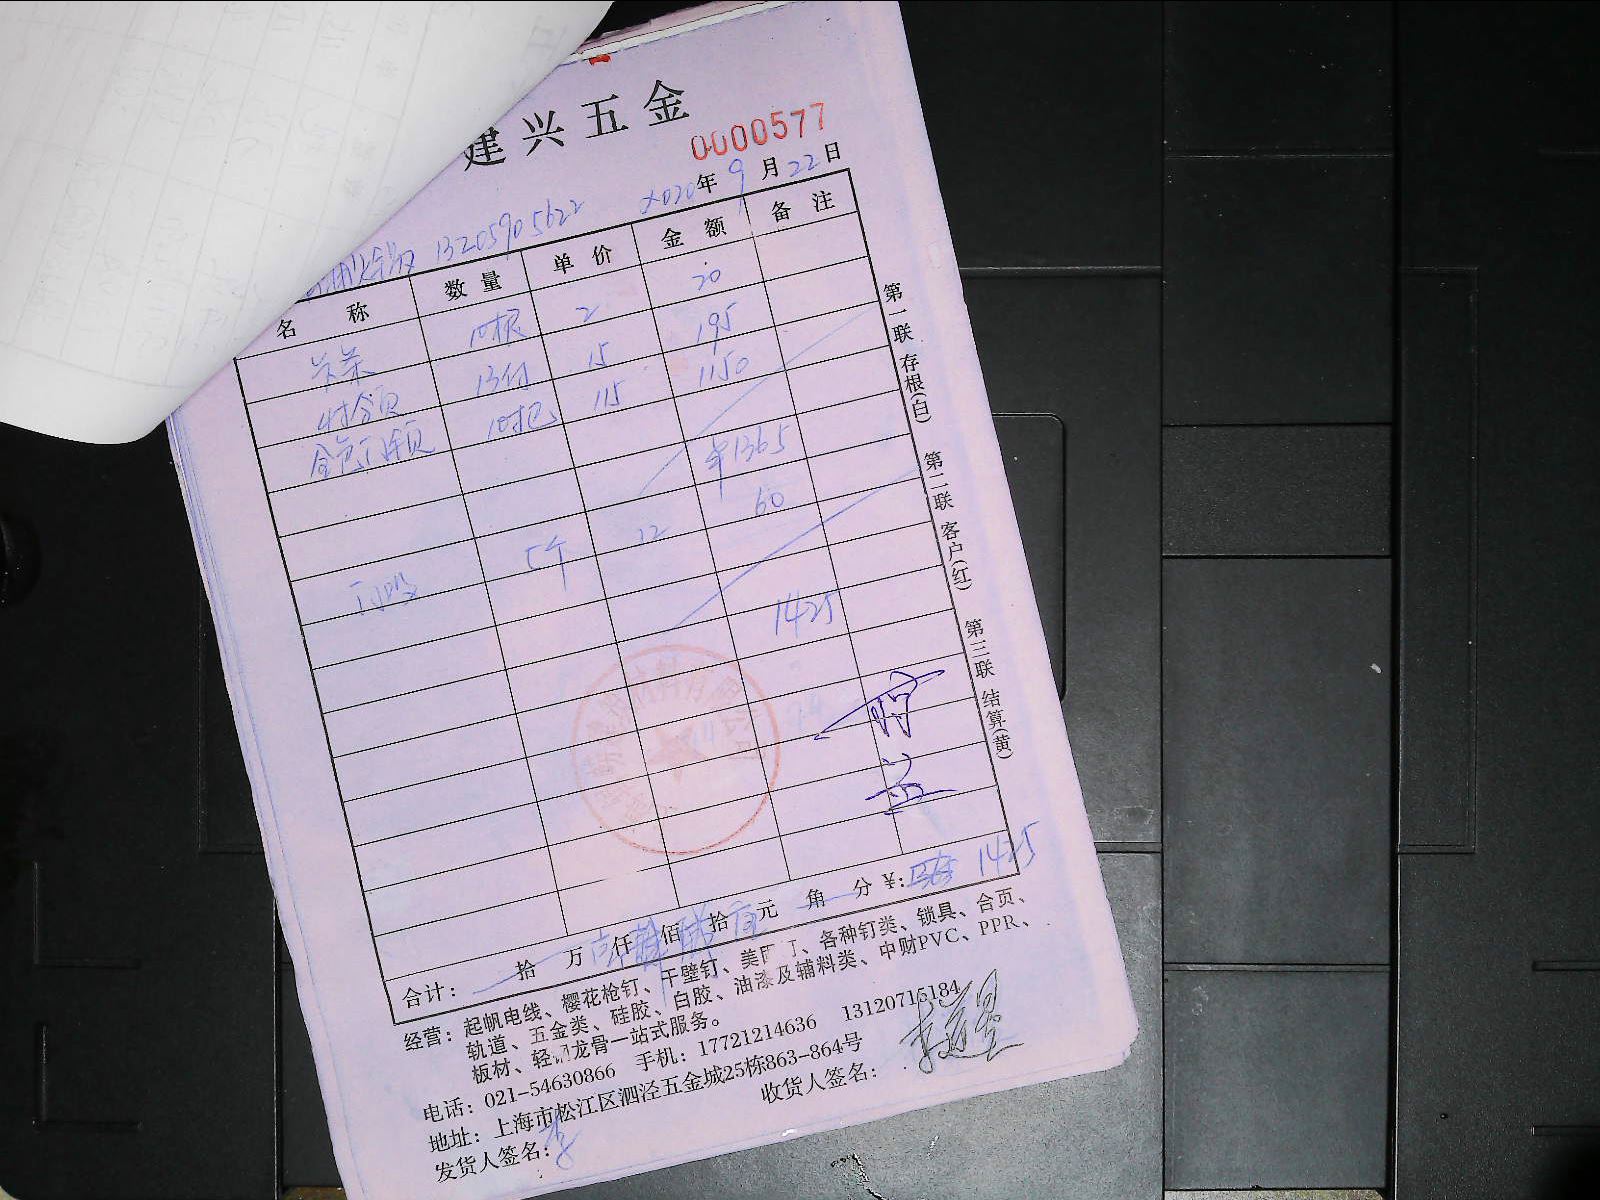 建兴五金
0000577
13205905622 2020年9月22日
名称 数量 单价 金额 备注
10根 2 20
13付 15 195
10把 115 1150
¥1365
门吸 5个 12 60
1425
合计: 拾 万 仟 佰 拾 元 角 分 ¥: 1425
经营: 起帆电线、樱花枪钉、干壁钉、美 丁、各种钉类、锁具、合页、
轨道、五金类、硅胶、白胶、油漆及辅料类、中财PVC、PPR、
板材、轻 龙骨一站式服务。
电话: 021-54630866 手机: 17721214636 13120715184
地址: 上海市松江区泗泾五金城25栋863-864号
发货人签名: 李 收货人签名:
第一联 存根(白) 第二联 客户(红) 第三联 结算(黄)